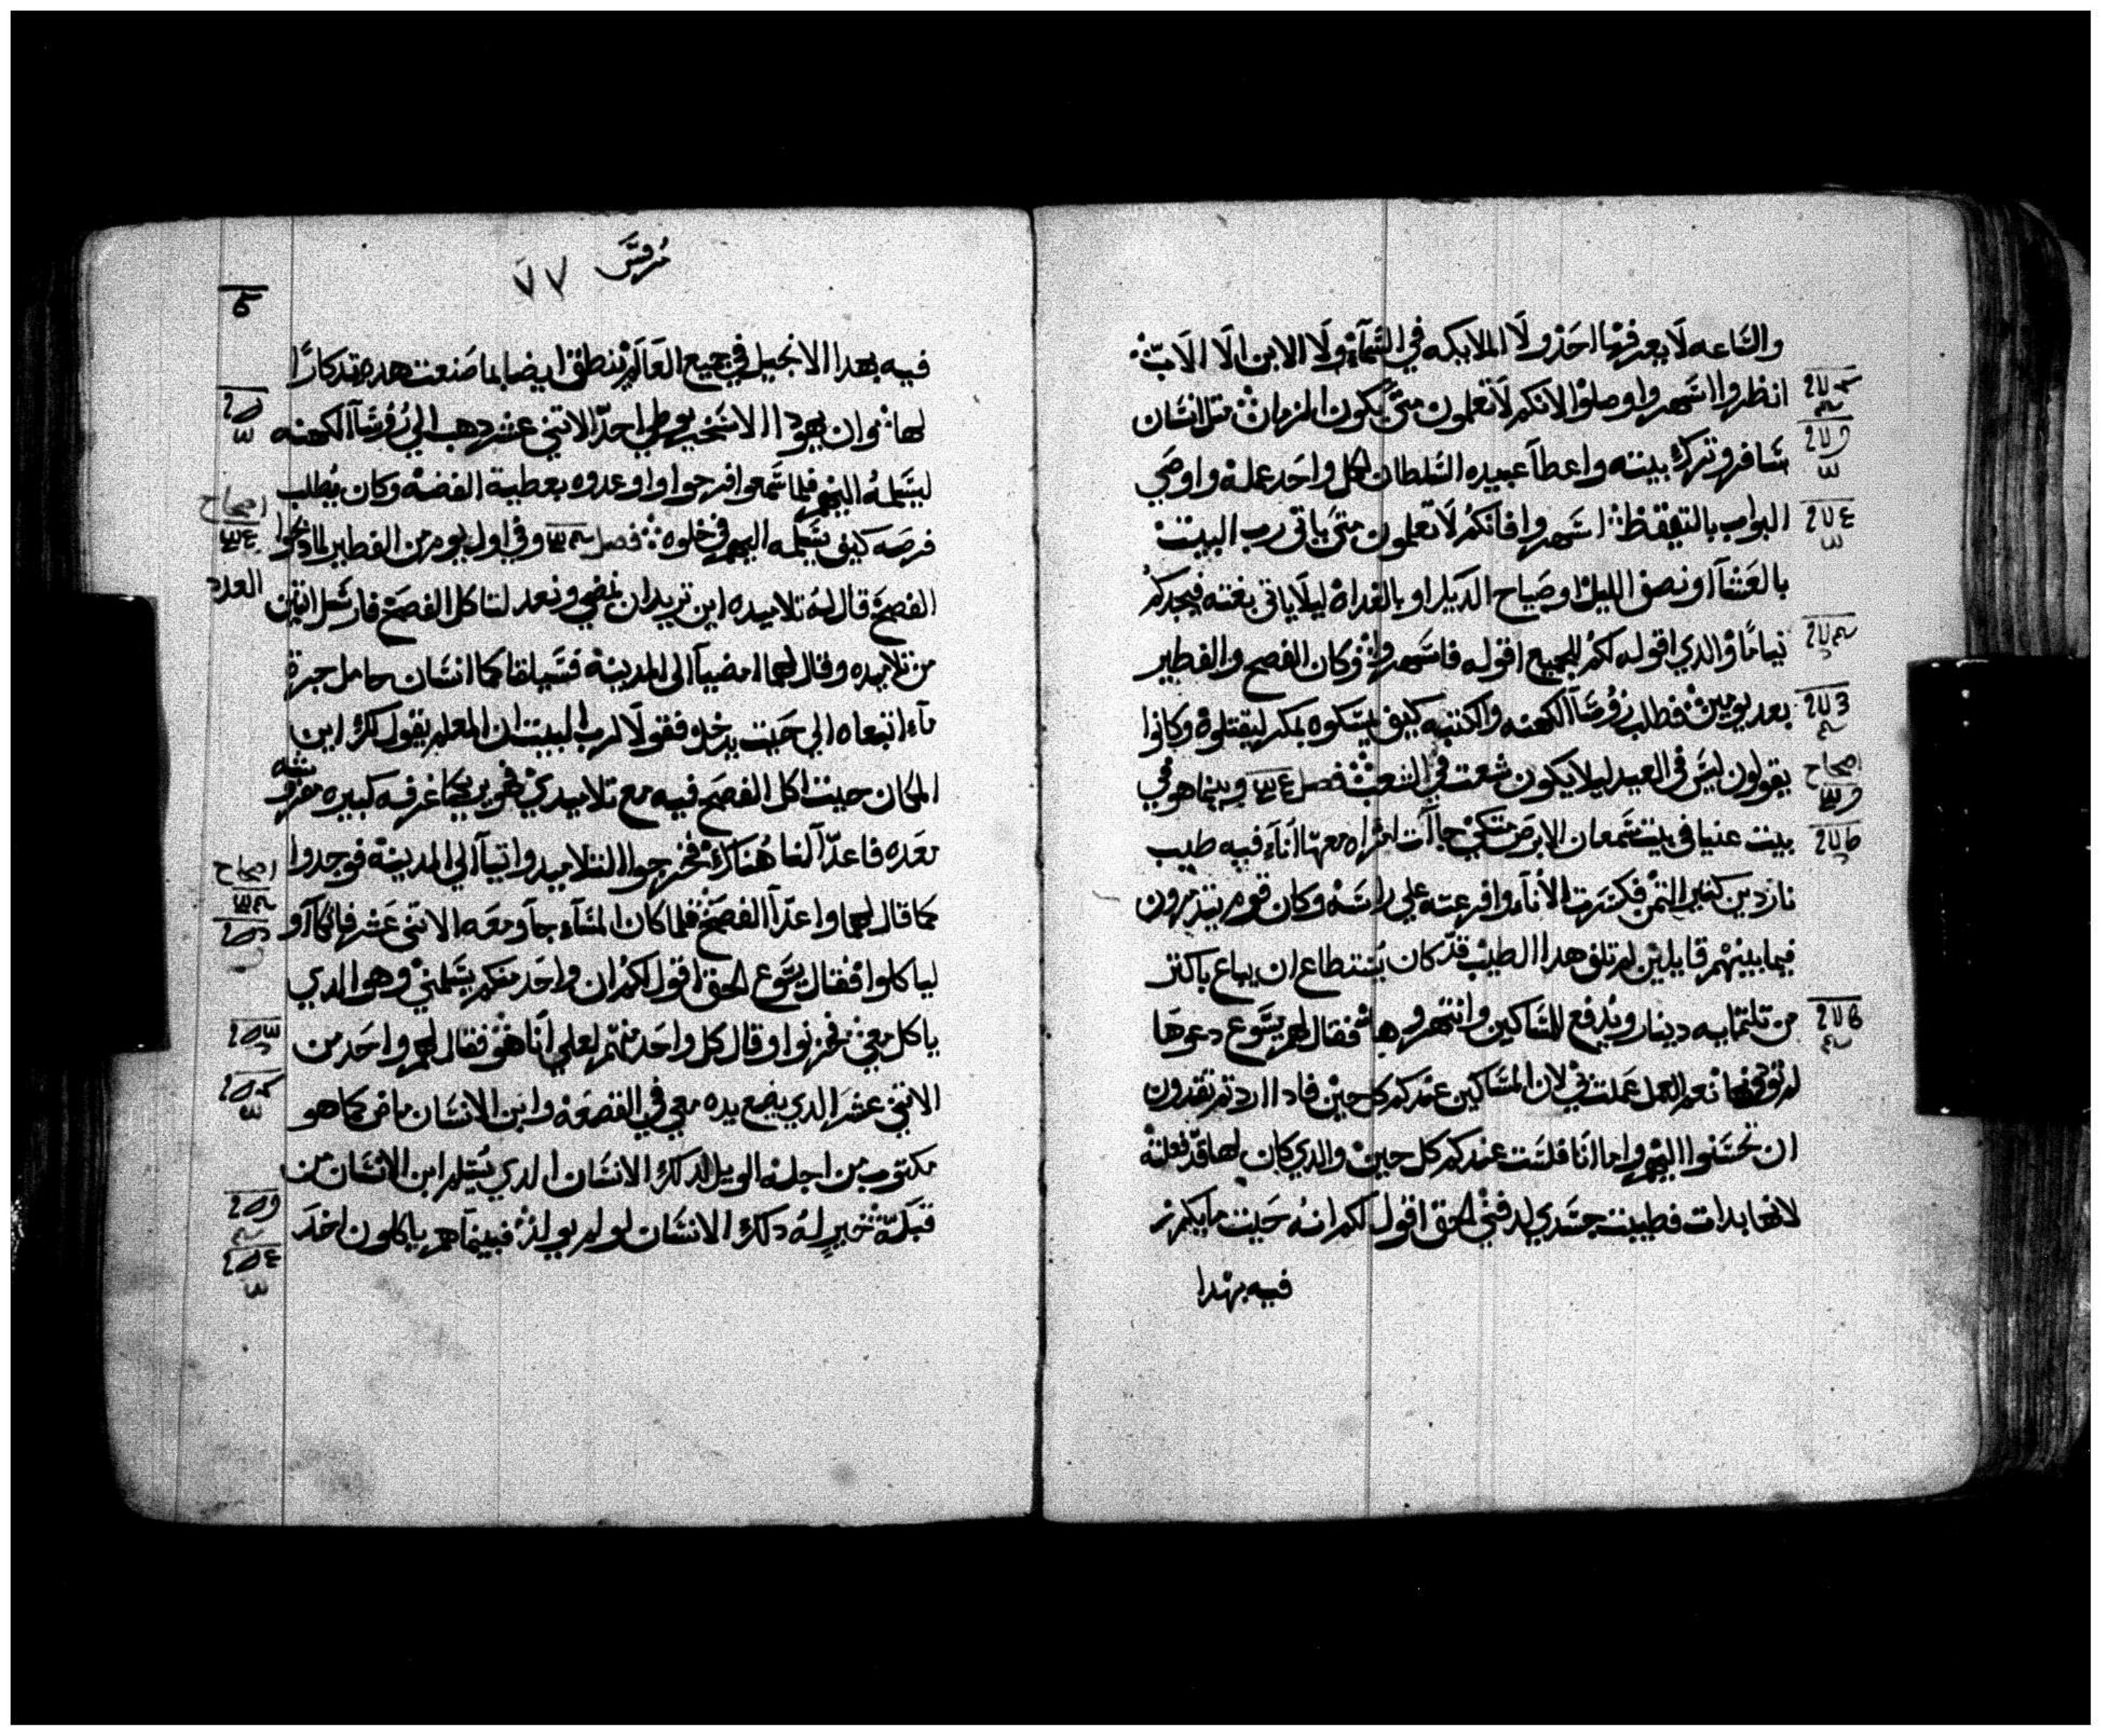 والسَاعه لَا يعرفها احَد ولَا الملايكه في السَّمآء ولَا الابن الَا الاَبّ
انظروا اسَهروا وصلوا لانكم لَا تعلمون متىَ يكون الزمان متل انسَان
سَافر وترك بيته واعطآ عبيده السَلطان لكل واحَد عمله واوصَي
البواب بالتيقظ اسَهروا فانكم لَا تعلمون متىَ ياتى رب البيت
بالعَشآ او نصف الليل او صَياح الديك او بالغداه ليلَا ياتى بغته فيجدكم
نيامًا والدي اقوله لكم للجميع اقوله فاسَهروا وكان الفصح والفطير
بعد يومين فطلب رؤسَآ الكهنه والكتبه كيف يمسَكوه بمكر ليقتلوه وكانوا
يقولون ليسَ في العيد ليلا يكون شعت في الشعب فصل وبينما هو في
بيت عنيا في بيت سَمعان الابرصَ متكي جآات امراه معها انآء فيه طيب
ناردين كتير التمن فكسَرت الأنآء وافرعته علي راسَه وكان قوم يتدمرون
فيما بينهم قايلين لم تلف هدا الطيب قد كان يُستطاع ان يباع باكتر
من تلتمايه دينار ويُدفع للمسَاكين وانتهروها فقال لهم يسَوع دعوهَا
لم توذونها نعم العمل عَملت في لان المسَاكين عندكم كل حين فادا اردتم تقدرون
ان تحسَنوا اليهم واما انَا فلسَت عندكم كل حين والدي كان لها قد فعلته
لانها بدات فطيبت جسَدي لدفني الحق اقول لكم انه حَيت ما يكرز
فيه بهدا
مُرقسَ ٧٧
فيه بهدا الانجيل في جميع العَالم ينطق ايضا بما صَنعت هده تدكارًا
لها وان يهودا الاسَخريوطي احدّ الاتني عشر دهب الي رُؤسَآ الكهنه
ليسَلمهُ اليهم فلما سَمعوا فرحوا واوعدوه بعطية الفضه وكان يُطلب
فرصَه كيف يسَلمه اليهم في خلوه فصل وفي اول يوم من الفطير لما دبحوا
الفصحَ قال لهُ تلاميده اين تريد ان نمضي ونعد لتاكل الفصحَ فارسَل اتنين
من تلاميده وقال لهما امضيآ الى المدينه فسَيلقاكما انسَان حامل جرة
مآء اتبعاه الي حَيت يدخل فقولَا لرب البيت ان المعلم يقول لك اين
المكان حيت اكل الفصحَ فيه مع تلاميدي فهو يريكما غرفه كبيره مفروشه
معَده فاعدّآ لنا هُناك فخرجوا التلاميد واتيآ الي المدينه فوجدوا
كما قال لهما واعدّآ الفصحَ فلما كان المسَآء جآ ومعَه الاتنى عَشر فاتكآوا
لياكلوا فقال يسَوع الحق اقول لكم ان واحَد منكم يسَلمني وهو الدي
ياكل معي فحزنوا وقال كل واحَد منهم لعلي انَا هو فقال لهم واحَد من
الاتني عشرَ الدي يضع يده معي في القصعَه وابن الانسَان ماض كما هو
مكتوب من اجله الويل لدلك الانسَان الدي يُسَلم ابن الانسَان من
قبله خير لهُ دلك الانسَان لو لم يولد فبينما هم ياكلون اخدَ
اصحاح
اصحاح
العدد
اصحاح